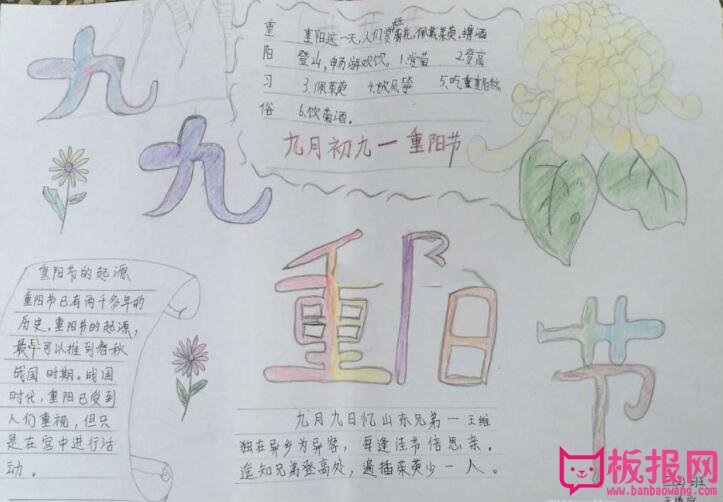 九
九
重阳习俗
重阳这一天,人们赏菊花,佩戴茱萸,携酒
登山,畅游欢饮。1.赏菊 2.登高
3.佩茱萸 4.放风筝 5.吃重阳糕
6.饮菊酒。
九月初九一重阳节
重阳节
重阳节的起源
重阳节已有两千多年的
历史,重阳节的起源,
最早可以推到春秋
战国时期。战国
时代,重阳已受到
人们重视,但只
是在宫中进行活
动。
九月九日忆山东兄弟一王维
独在异乡为异客,每逢佳节倍思亲。
遥知兄弟登高处,遍插茱萸少一人。
板报网
www.banbaowang.com